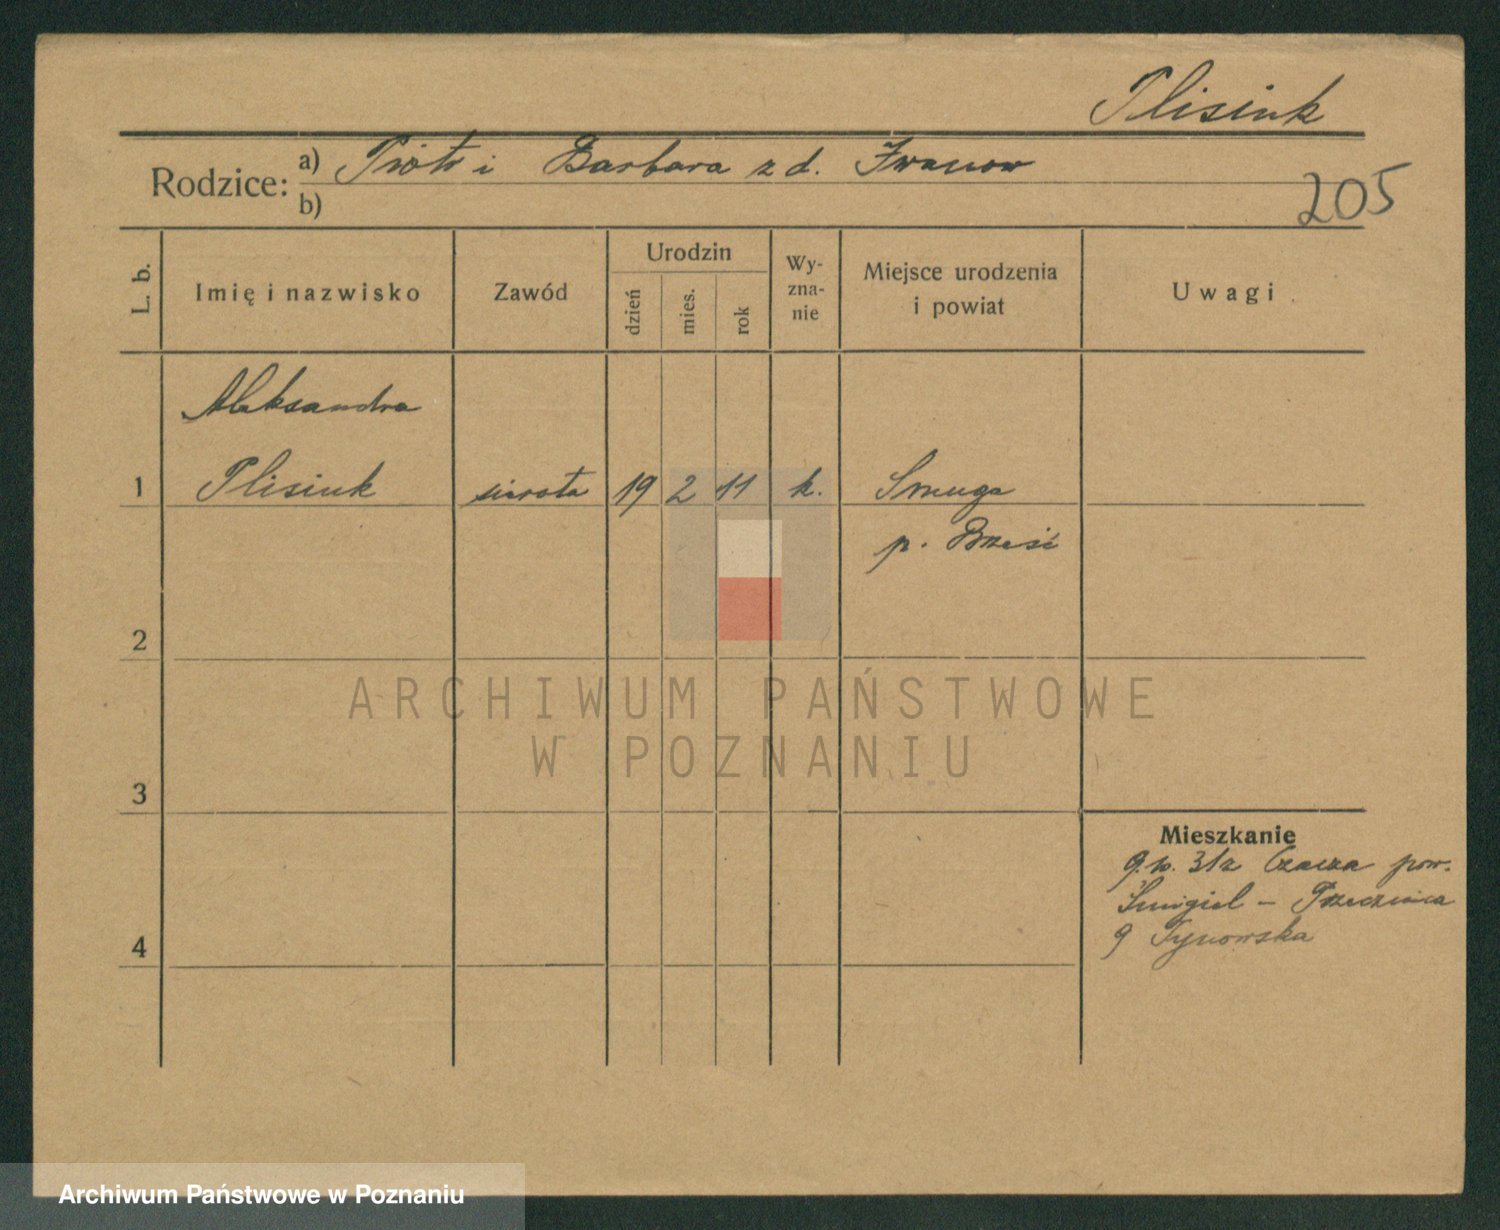 Plisiuk
Rodzice: a) Piotr i Barbara z d. Iwanow
b)
205
L. b.
Imię i nazwisko
Zawód
Urodzin
dzień
mies.
rok
Wy-
zna-
nie
Miejsce urodzenia
i powiat
Uwagi
Aleksandra
1 Plisiuk sierota 19 2 11 k. Smuga
p. Brześć
2
3
4
Mieszkanie
9. w. 31 z Czacza pow.
Śmigiel - Przecznica
9 Tynowska
ARCHIWUM PAŃSTWOWE
W POZNANIU
Archiwum Państwowe w Poznaniu